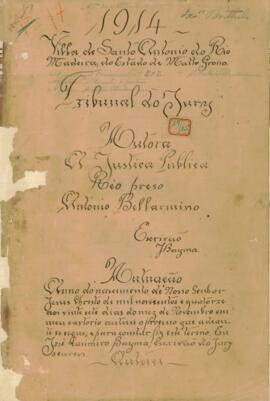 1914
Villa de Santo Antonio do Rio
Madeira, do Estado de Matto Grosso.
Tribunal do Jury
Autora
A Justiça Publica
Réo preso
Antonio Bellarmino
Escrivão
Bayma.
Autuação
Anno do nascimento de Nosso Senhor
Jesus Christo de mil novecentos e quatorze
aos vinte e sete dias do mez de Novembro em
meu cartorio autuei o processo que adean-
te segue; e para constar fiz este termo. Eu
José Bayma, escrivão do Jury